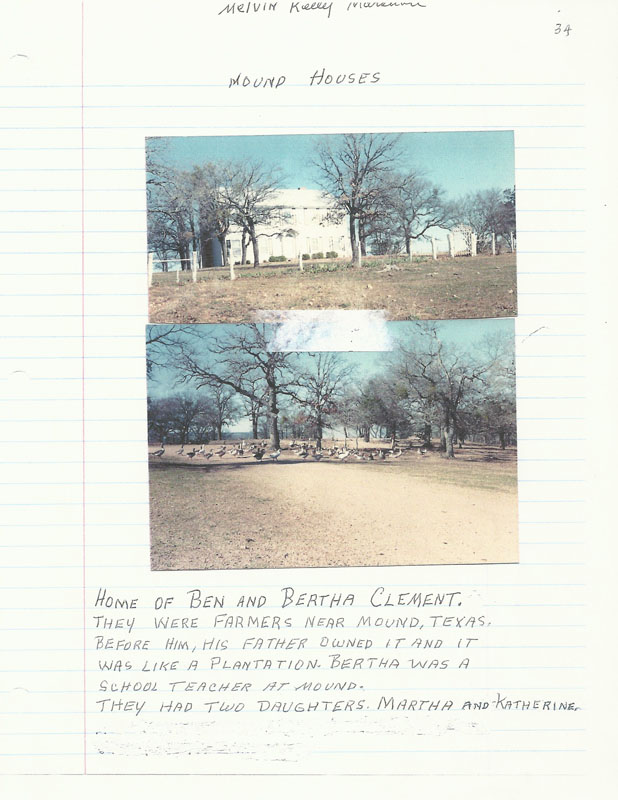 Melvin Kelly
34
MOUND HOUSES
HOME OF BEN AND BERTHA CLEMENT.
THEY WERE FARMERS NEAR MOUND, TEXAS.
BEFORE HIM, HIS FATHER OWNED IT AND IT
WAS LIKE A PLANTATION. BERTHA WAS A
SCHOOL TEACHER AT MOUND.
THEY HAD TWO DAUGHTERS. MARTHA AND KATHERINE.